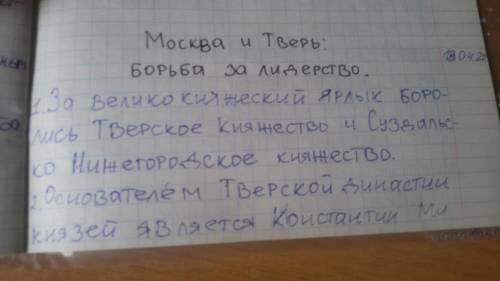 Москва и Тверь:
борьба за лидерство.
1. За великокняжеский ярлык боро-
лись Тверское княжество и Суздальс-
ко Нижегородское княжество.
2. Основателем Тверской династии
князей является Константин Ми